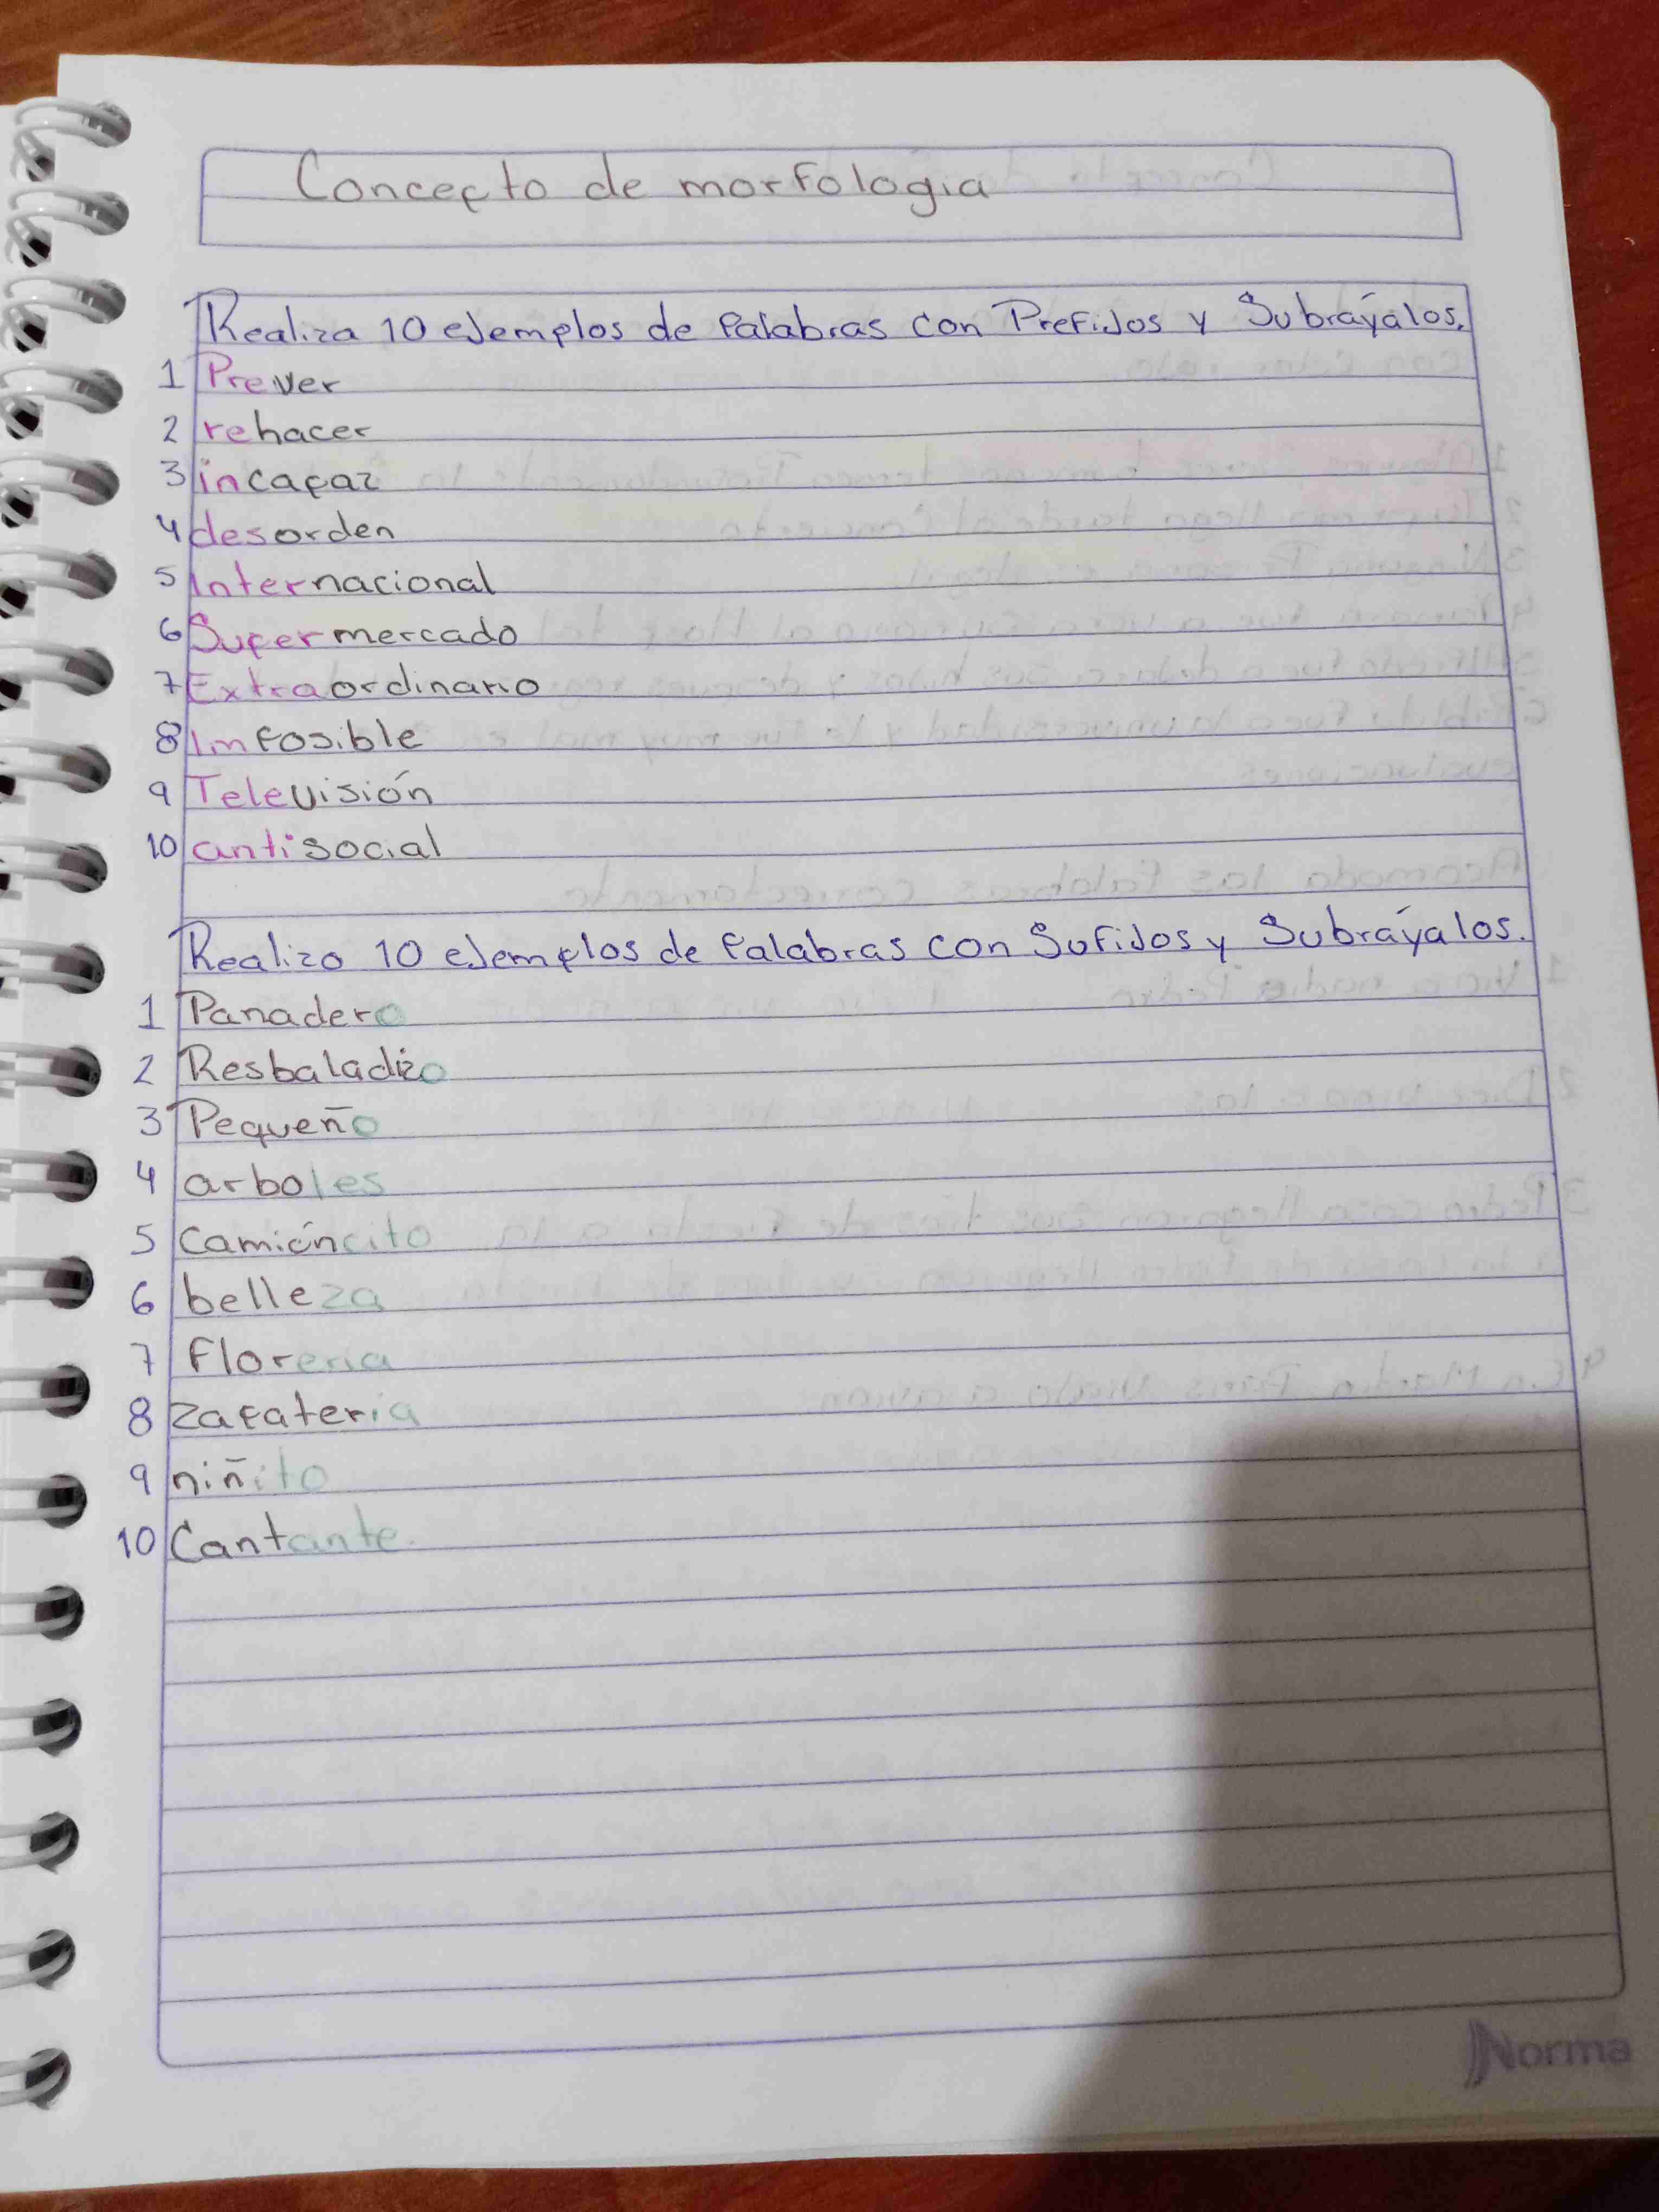 Concepto de morfologia
Realiza 10 ejemplos de palabras con Prefijos y Subráyalos.
1 Prever
2 rehacer
3 incapaz
4 desorden
5 Internacional
6 Supermercado
7 Extraordinario
8 Imposible
9 Televisión
10 antisocial
Realizo 10 ejemplos de palabras con Sufijos y Subráyalos.
1 Panadero
2 Resbaladizo
3 Pequeño
4 arboles
5 camióncito
6 belleza
7 floreria
8 zapateria
9 niñito
10 Cantante.
Norma